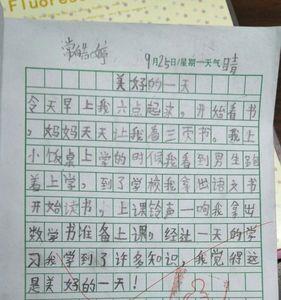 Fluores
常皓婷
9月25日/星期一天气晴
美好的一天
今天早上我六点起来，开始看书
，妈妈天天让我看三页书。我上
小饭桌上学的时候我看到男生跑
着上学，到了学校我拿出语文书
开始读书，上课铃声一响我拿出
数学书准备上课，经过一天的学
习我学到了许多知识，我觉得这
是美好的一天！